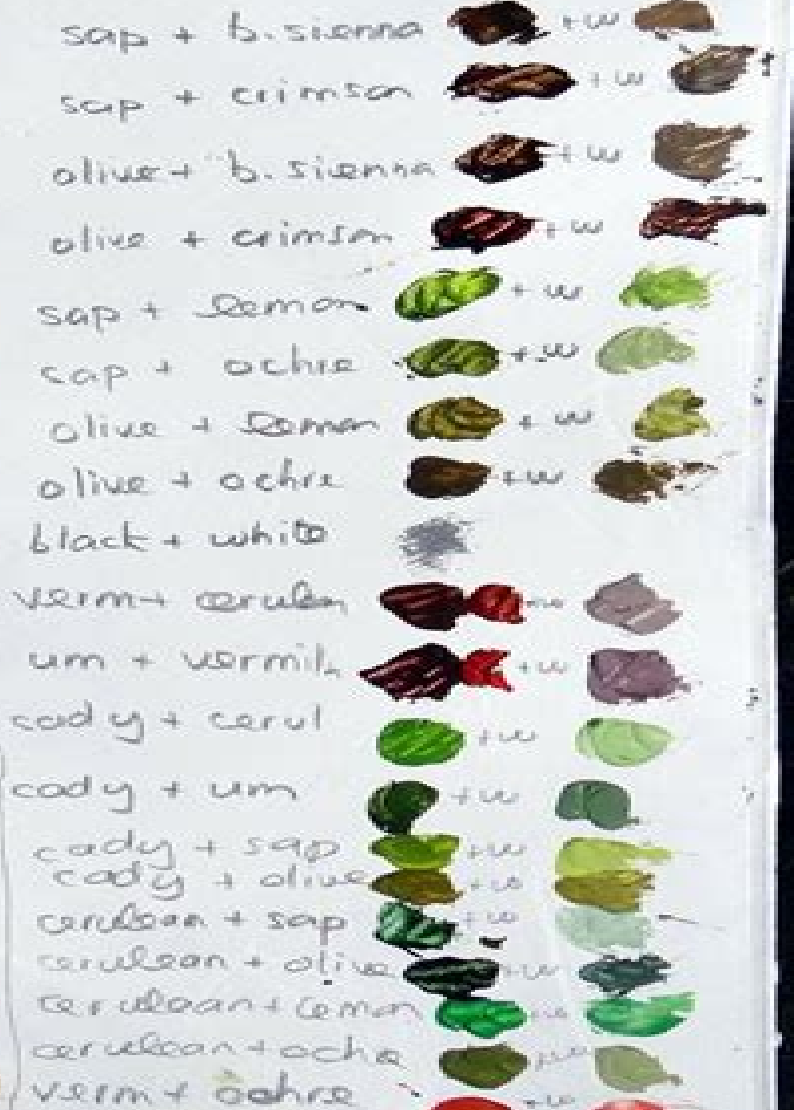 sap + b. sienna +w
sap + crimson +w
olive + b. sienna +w
olive + crimson +w
sap + lemon +w
cap + ochre +w
olive + lemon + w
olive + ochre +w
black + white
verm + cerulen +w
um + vermil. +w
cad y + cerul +w
cad y + um +w
cady + sap +w
cady + olive +w
cerulean + sap +w
cerulean + olive +w
cerulean + lemon +w
cerulean + ochre +w
verm + ochre +w